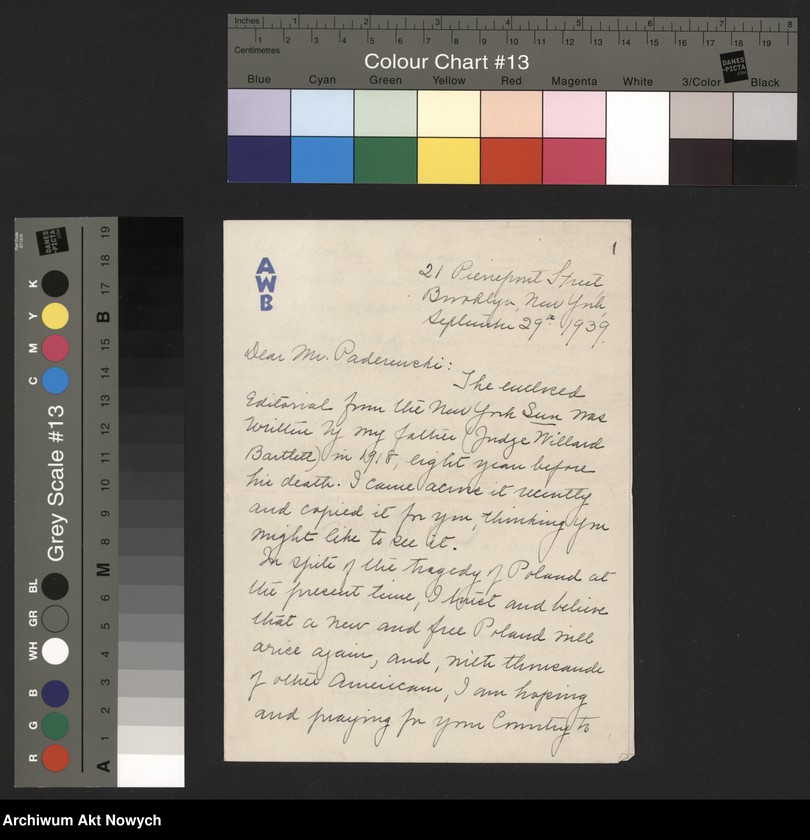 Inches 1 2 3 4 5 6 7 8
Centimetres 1 2 3 4 5 6 7 8 9 10 11 12 13 14 15 16 17 18 19
Colour Chart #13
DANES
-PICTA
.com
Blue Cyan Green Yellow Red Magenta White 3/Color Black
Grey Scale #13
DANES
-PICTA
.com
R G B WH GR BL C M Y K
A 1 2 3 4 5 6 M 8 9 10 11 12 13 14 15 B 17 18 19
1
A
W
B
21 Pierrepont Street
Brooklyn, New York,
September 29th 1939.
Dear Mr. Paderewski:
The enclosed
Editorial from the New York Sun was
written by my father (Judge Willard
Bartlett) in 1918, eight years before
his death. I came across it recently
and copied it for you, thinking you
might like to see it.
In spite of the tragedy of Poland at
the present time, I trust and believe
that a new and free Poland will
arise again, and, with thousands
of other Americans, I am hoping
and praying for your Country to
Archiwum Akt Nowych